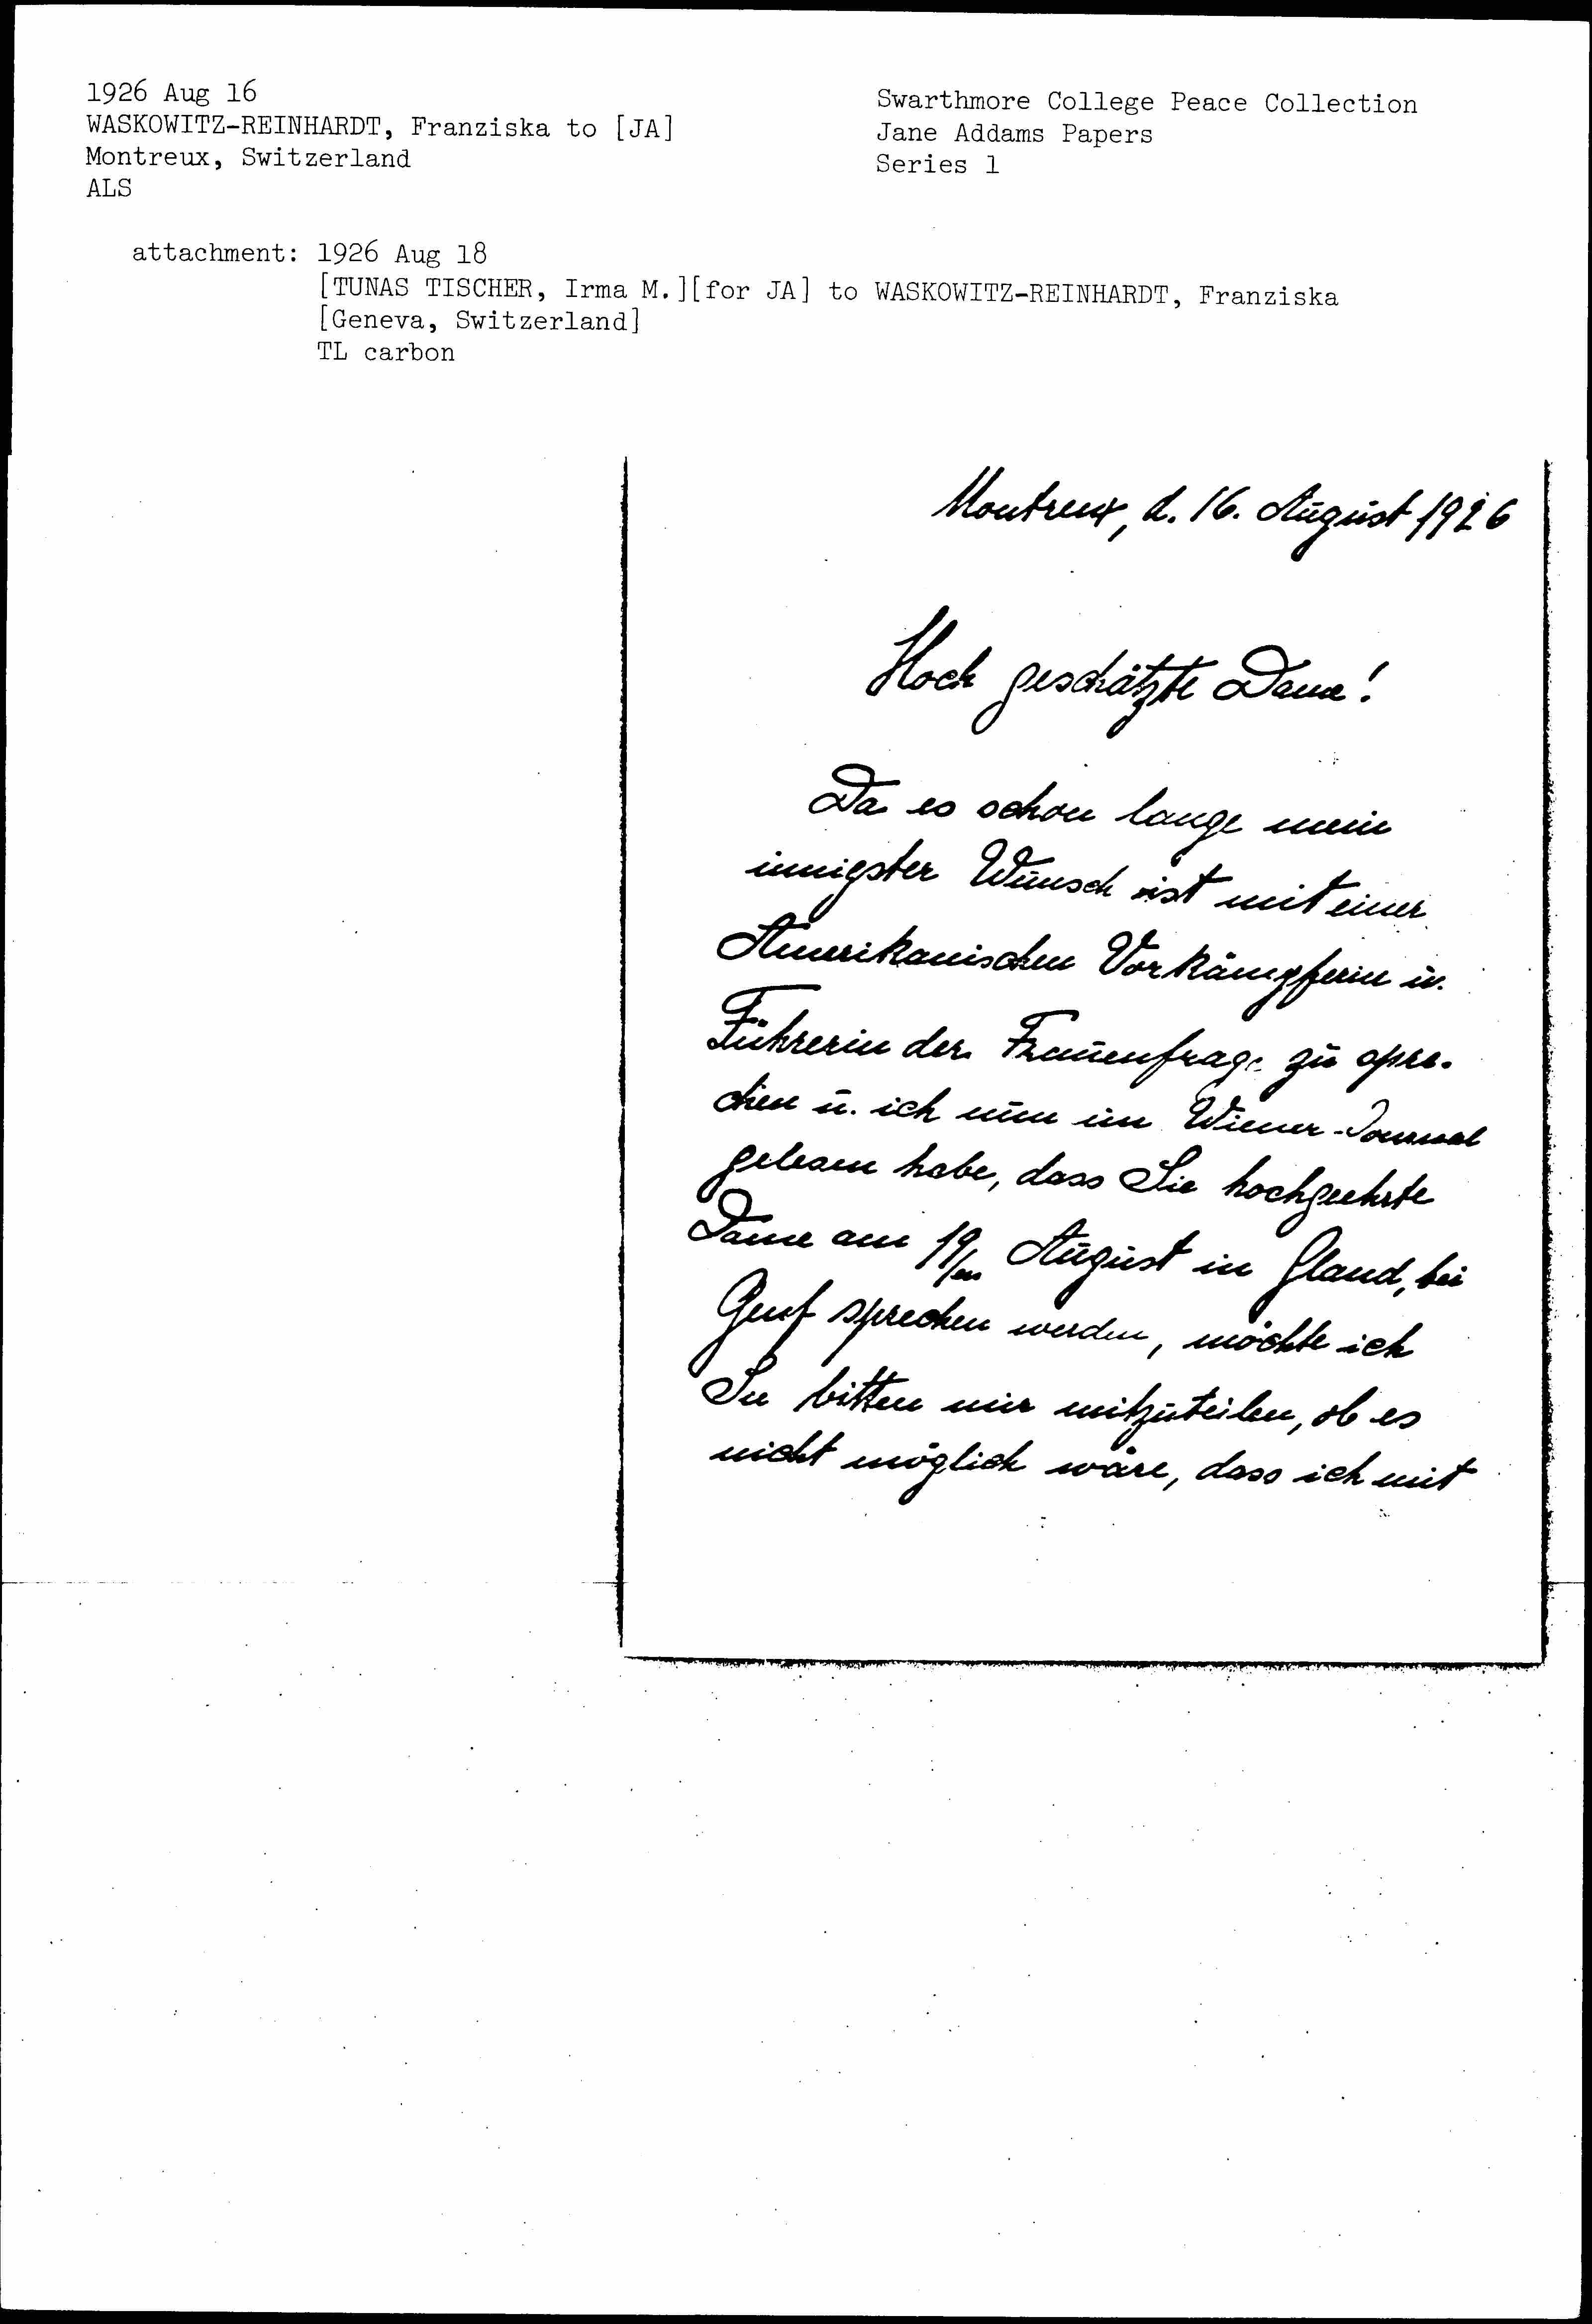 1926 Aug 16
WASKOWITZ-REINHARDT, Franziska to [JA]
Montreux, Switzerland
ALS
Swarthmore College Peace Collection
Jane Addams Papers
Series 1
attachment: 1926 Aug 18
[TUNAS TISCHER, Irma M.][for JA] to WASKOWITZ-REINHARDT, Franziska
[Geneva, Switzerland]
TL carbon
Montreux, d. 16. August 1926
Hoch geschätzte Dame!
Da es schon lange mein
innigster Wunsch ist mit einer
Amerikanischen Vorkämpferin u.
Führerin der Frauenfrage zu spre-
chen u. ich nun im Wiener-Journal
gelesen habe, dass Sie hochgeehrte
Dame am 19/en August in Gland, bei
Genf sprechen werden, möchte ich
Sie bitten mir mitzuteilen, ob es
nicht möglich wäre, dass ich mit